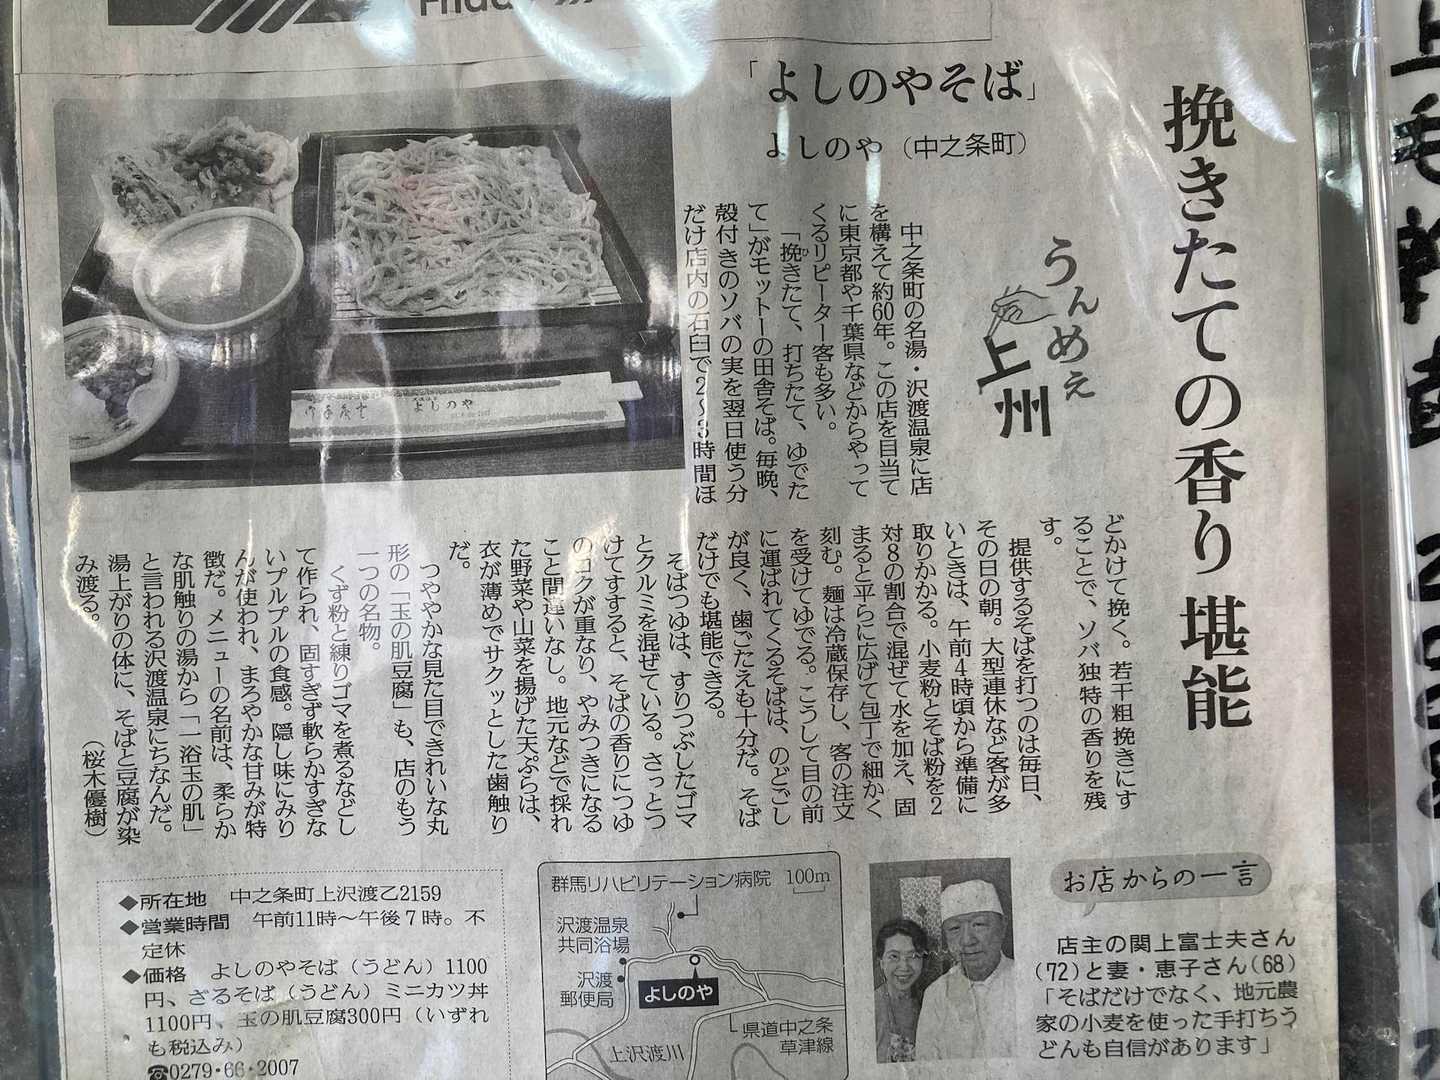 挽きたての香り堪能
「よしのやそば」
よしのや（中之条町）
うんめえ
上州
中之条町の名湯・沢渡温泉に店
を構えて約60年。この店を目当て
に東京都や千葉県などからやって
くるリピーター客も多い。
「挽きたて、打ちたて、ゆでた
て」がモットーの田舎そば。毎晩、
殻付きのソバの実を翌日使う分
だけ店内の石臼で2～3時間ほ
どかけて挽く。若干粗挽きにす
ることで、ソバ独特の香りを残
す。
提供するそばを打つのは毎日、
その日の朝。大型連休など客が多
いときは、午前4時頃から準備に
取りかかる。小麦粉とそば粉を2
対8の割合で混ぜて水を加え、固
まると平らに広げて包丁で細かく
刻む。麺は冷蔵保存し、客の注文
を受けてゆでる。こうして目の前
に運ばれてくるそばは、のどごし
が良く、歯ごたえも十分だ。そば
だけでも堪能できる。
そばつゆは、すりつぶしたゴマ
とクルミを混ぜている。さっとつ
けてすすると、そばの香りにつゆ
のコクが重なり、やみつきになる
こと間違いなし。地元などで採れ
た野菜や山菜を揚げた天ぷらは、
衣が薄めでサクッとした歯触り
だ。
つややかな見た目できれいな丸
形の「玉の肌豆腐」も、店のもう
一つの名物。
くず粉と練りゴマを煮るなどし
て作られ、固すぎず軟らかすぎな
いプルプルの食感。隠し味にみり
んが使われ、まろやかな甘みが特
徴だ。メニューの名前は、柔らか
な肌触りの湯から「一浴玉の肌」
と言われる沢渡温泉にちなんだ。
湯上がりの体に、そばと豆腐が染
み渡る。
（桜木優樹）
よしのや
◆所在地　中之条町上沢渡乙2159
◆営業時間　午前11時～午後7時。不
定休
◆価格　よしのやそば（うどん）1100
円、ざるそば（うどん）ミニカツ丼
1100円、玉の肌豆腐300円（いずれ
も税込み）
☎0279・66・2007
群馬リハビリテーション病院
100m
沢渡温泉
共同浴場
沢渡
郵便局
よしのや
県道中之条
草津線
上沢渡川
お店からの一言
店主の関上富士夫さん
（72）と妻・恵子さん（68）
「そばだけでなく、地元農
家の小麦を使った手打ちう
どんも自信があります」